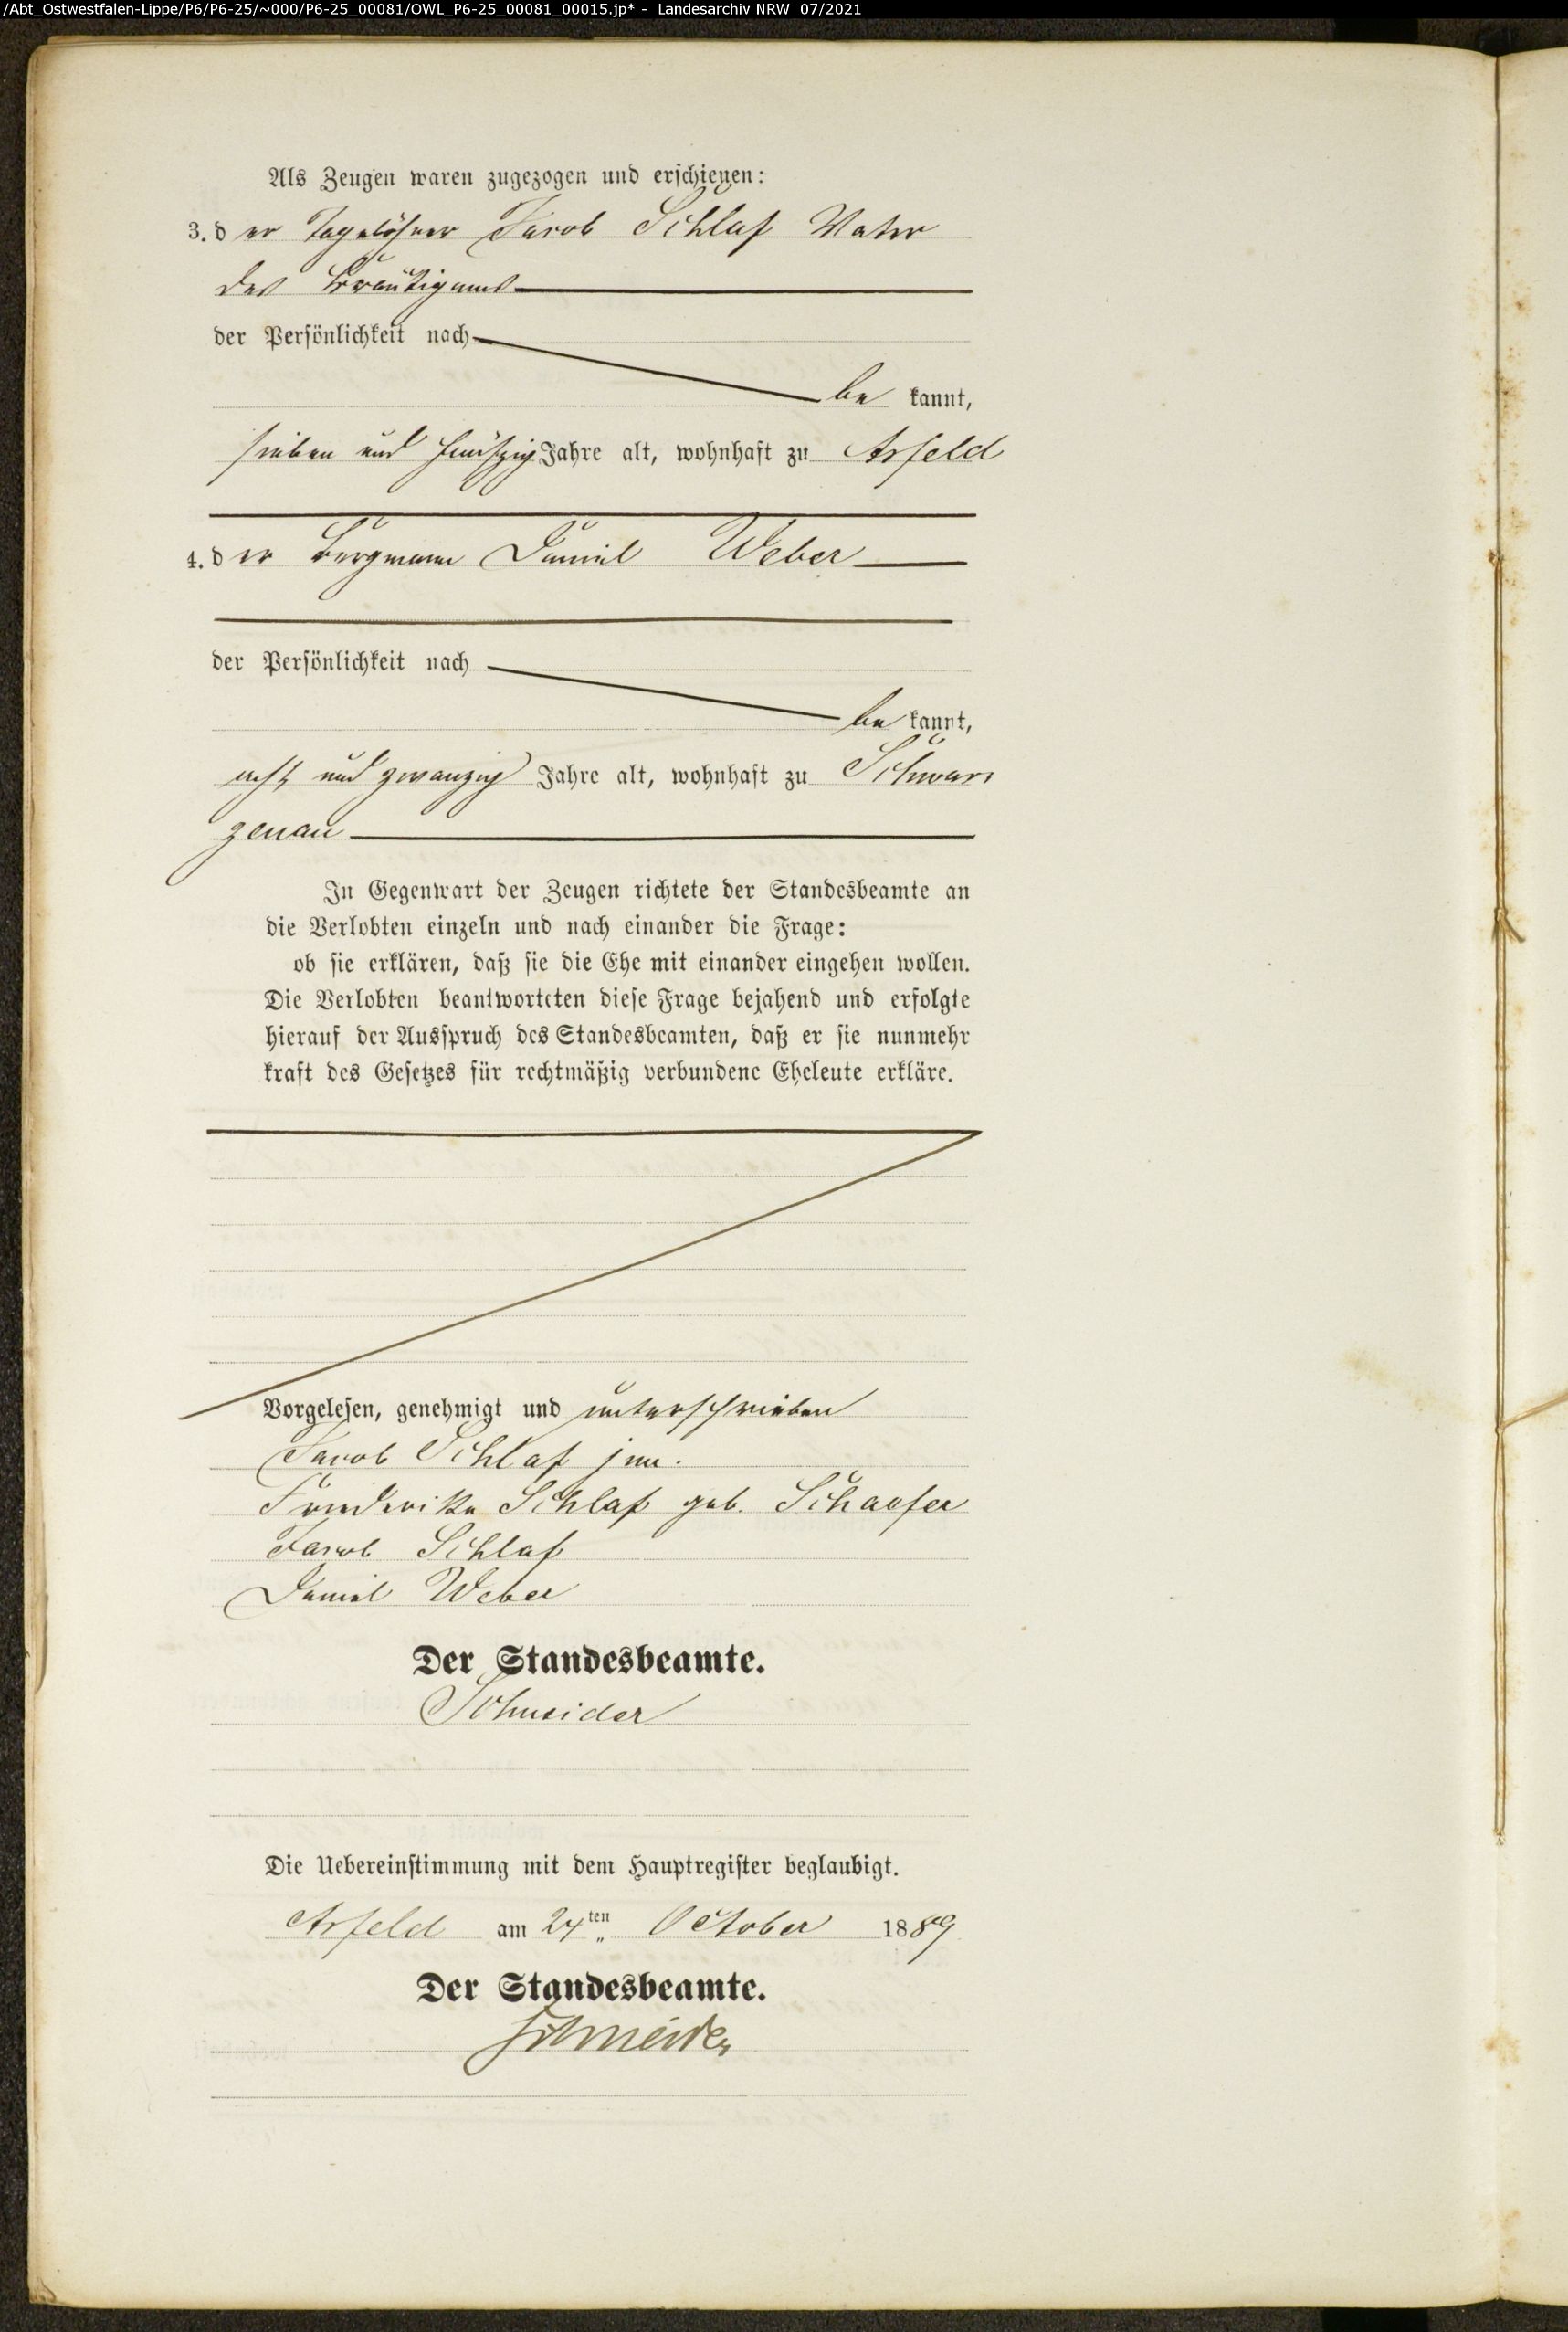 /Abt_Ostwestfalen-Lippe/P6/P6-25/~000/P6-25_00081/OWL_P6-25_00081_00015.jp* - Landesarchiv NRW 07/2021
Als Zeugen waren zugezogen und erschienen:
3. der Tagelöhner Jacob Schlaf Vater
des Bräutigams
der Persönlichkeit nach
be kannt,
sieben und fünfzig Jahre alt, wohnhaft zu Arfeld
4. der Bergmann Daniel Weber
der Persönlichkeit nach
be kannt,
acht und zwanzig Jahre alt, wohnhaft zu Schwar,
zenau
In Gegenwart der Zeugen richtete der Standesbeamte an
die Verlobten einzeln und nach einander die Frage:
ob sie erklären, daß sie die Ehe mit einander eingehen wollen.
Die Verlobten beantworteten diese Frage bejahend und erfolgte
hierauf der Ausspruch des Standesbeamten, daß er sie nunmehr
kraft des Gesetzes für rechtmäßig verbundene Eheleute erkläre.
Vorgelesen, genehmigt und unterschrieben
Jacob Schlaf jun.
Friederike Schlaf geb. Schaefer
Jacob Schlaf
Daniel Weber
Der Standesbeamte.
Schneider
Die Uebereinstimmung mit dem Hauptregister beglaubigt.
Arfeld am 24ten October 1889
Der Standesbeamte.
Schneider